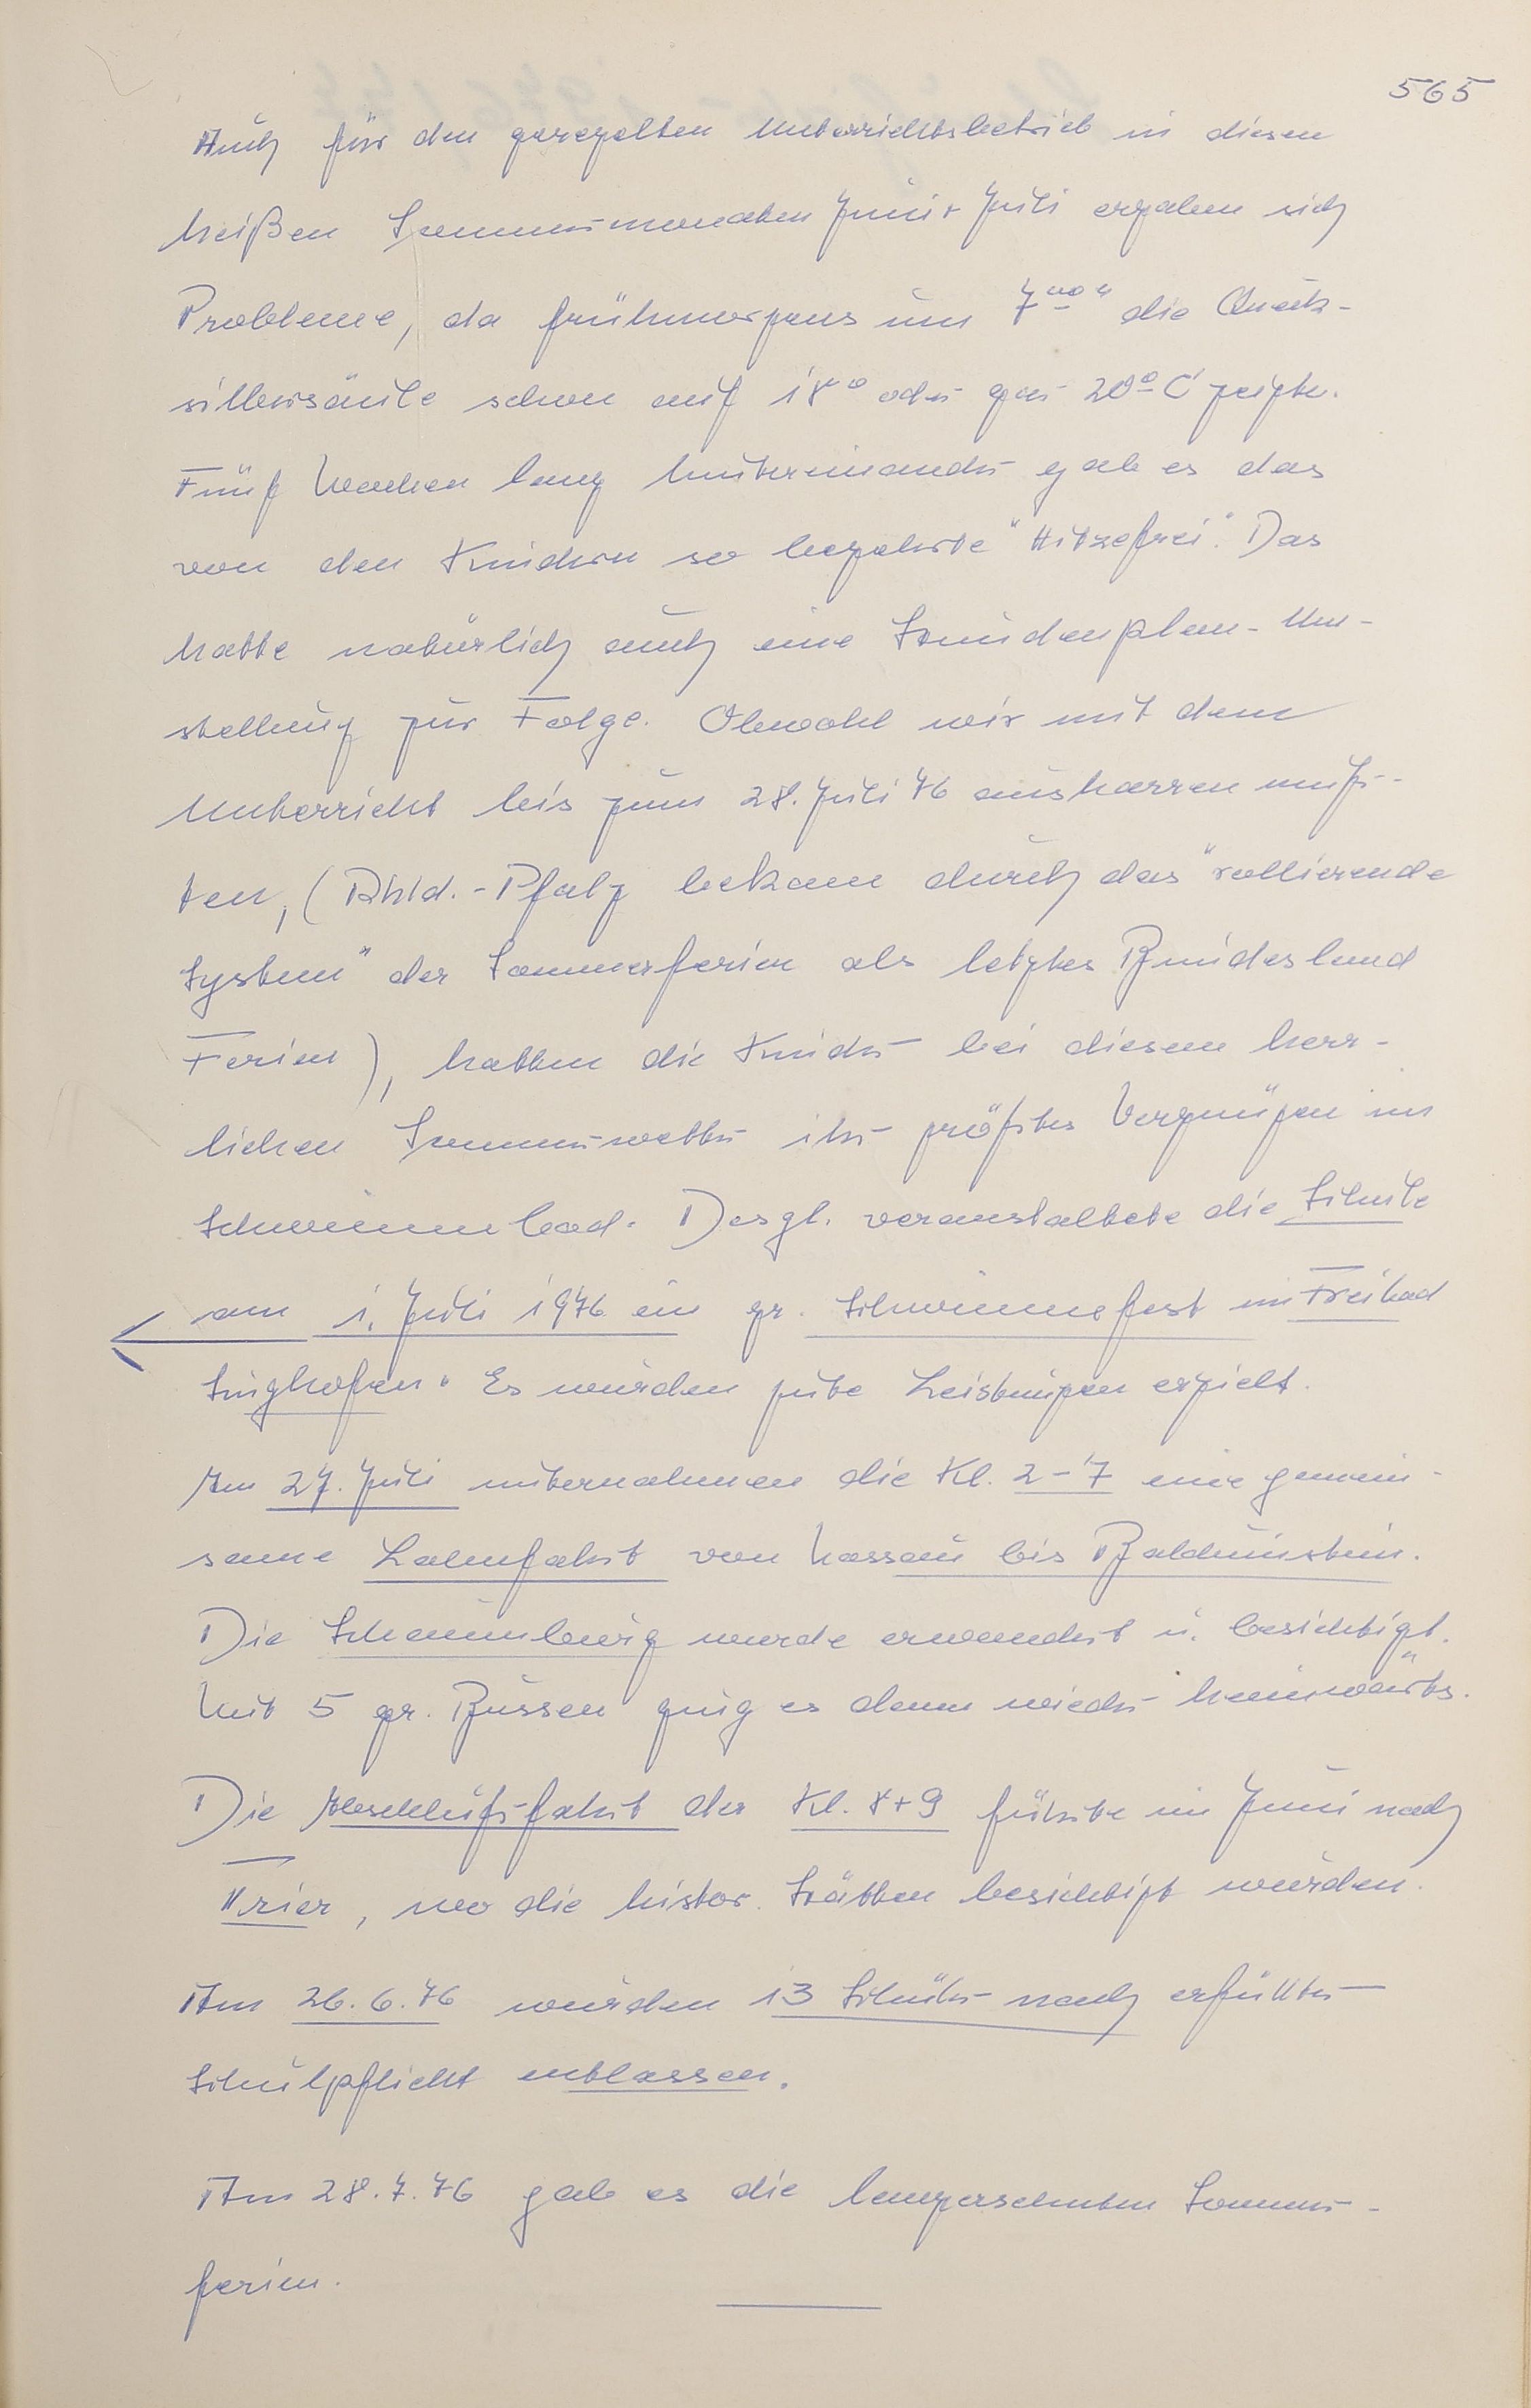 565
Auch für den geregelten Unterrichtsbetrieb in diesen
heißen Sommermonaten Juni + Juli ergaben sich
Probleme, da frühmorgens um 7⁰⁰ " die Queck-
silbersäule schon auf 18° oder gar 20° C zeigte.
Fünf Wochen lang hintereinander gab es das
von den Kindern so begehrte "Hitzefrei". Das
hatte natürlich auch eine Stundenplan-Um-
stellung zur Folge. Obwohl wir mit dem
Unterricht bis zum 28. Juli 76 ausharren muß-
ten, (Rhld.-Pfalz bekam durch das "rollierende
System" der Sommerferien als letztes Bundesland
Ferien), hatten die Kinder bei diesem herr-
lichen Sommerwetter ihr größtes Vergnügen im
Schwimmbad. Desgl. veranstaltete die Schule
am 1. Juli 1976 ein gr. Schwimmfest im Freibad
Singhofen. Es wurden gute Leistungen erzielt.
Am 27. Juli unternahmen die Kl. 2-7 eine gemein-
same Lahnfahrt von Nassau bis Balduinstein.
Die Schaumburg wurde erwandert u. besichtigt.
Mit 5 gr. Bussen ging es dann wieder heimwärts.
Die Abschlußfahrt der Kl. 8+9 führte im Juni nach
Trier, wo die histor. Stätten besichtigt wurden.
Am 26.6.76 wurden 13 Schüler nach erfüllter
Schulpflicht entlassen.
Am 28.7.76 gab es die langersehnten Sommer-
ferien.